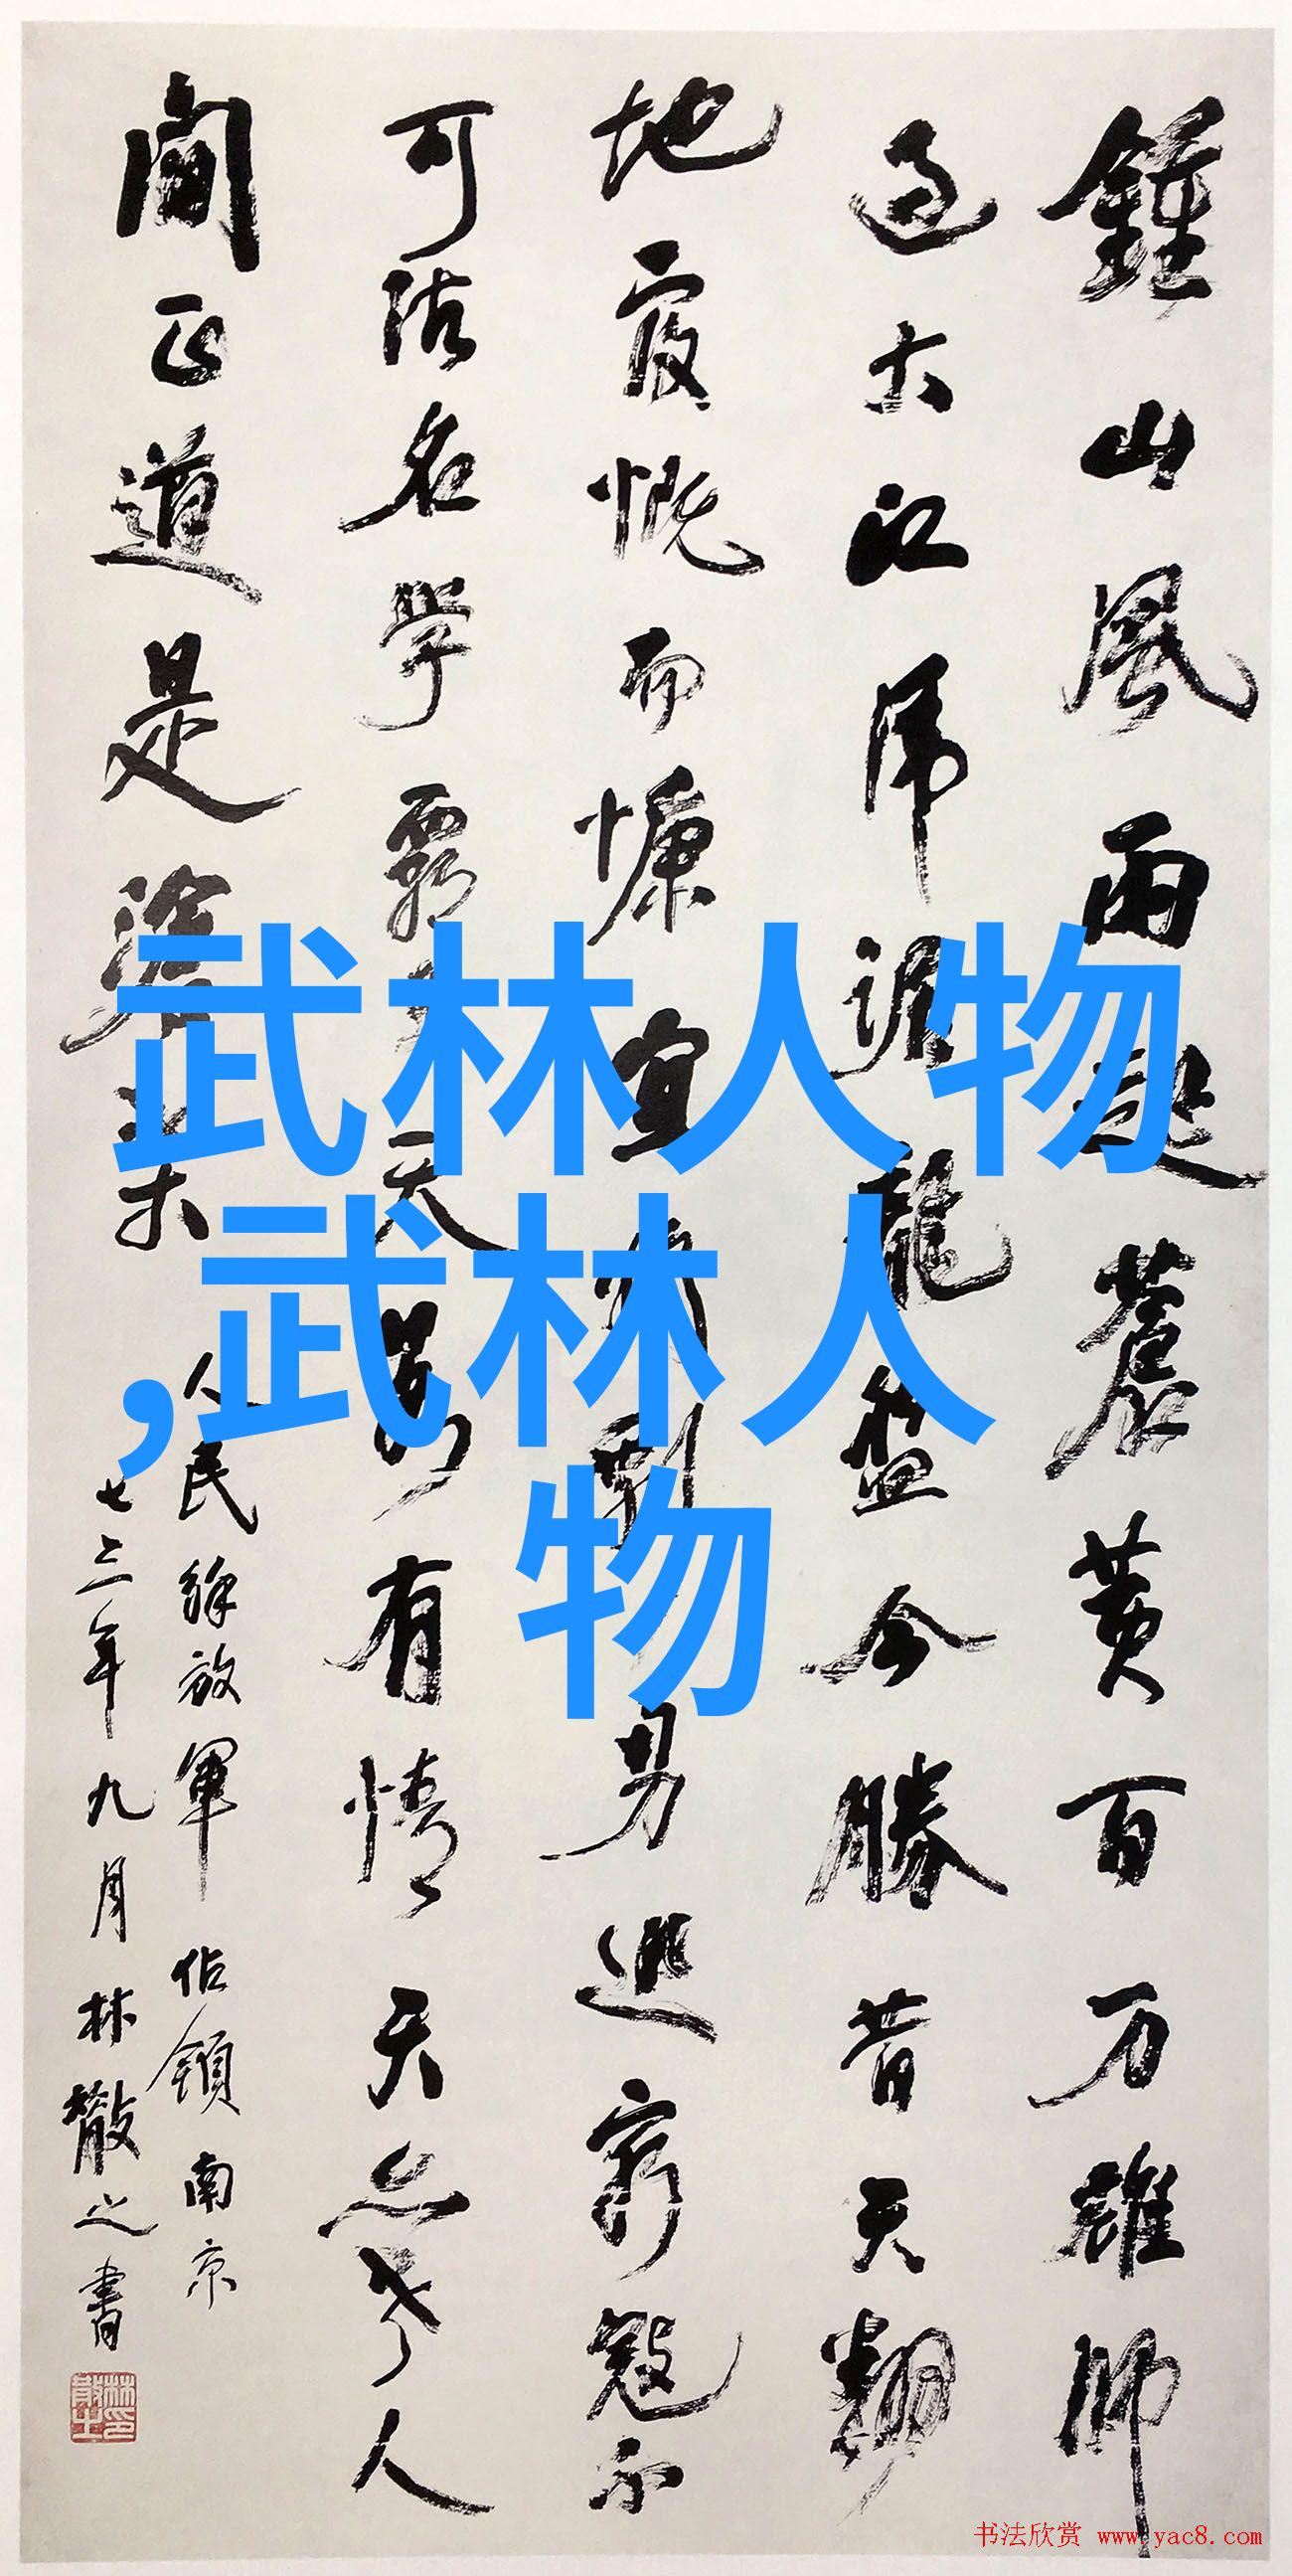 鍾山風雨起蒼黄百万雄師
過大江虎踞龍盤今勝昔天翻
地覆慨而慷宜将剩勇追窮寇不
可沽名學霸王天若有情天亦老人
間正道是滄桑
人民解放軍佔領南京
七三年九月林散之書
林散之印
武林人物
,武林人
物
书法欣赏 www.yac8.com